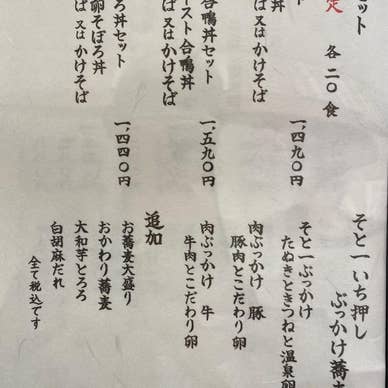 ット
定 各二〇食
丼
ば 又は かけそば
一、四九〇円
合鴨丼セット
ースト合鴨丼
ば 又は かけそば
一、五九〇円
ろ丼セット
卵そぼろ丼
ば 又は かけそば
一、四四〇円
そと一いち押し
ぶっかけ蕎
そと一ぶっかけ
たぬきときつねと温泉卵
肉ぶっかけ 豚
豚肉とこだわり卵
肉ぶっかけ 牛
牛肉とこだわり卵
追加
お蕎麦大盛り
おかわり蕎麦
大和芋とろろ
白胡麻だれ
全て税込です